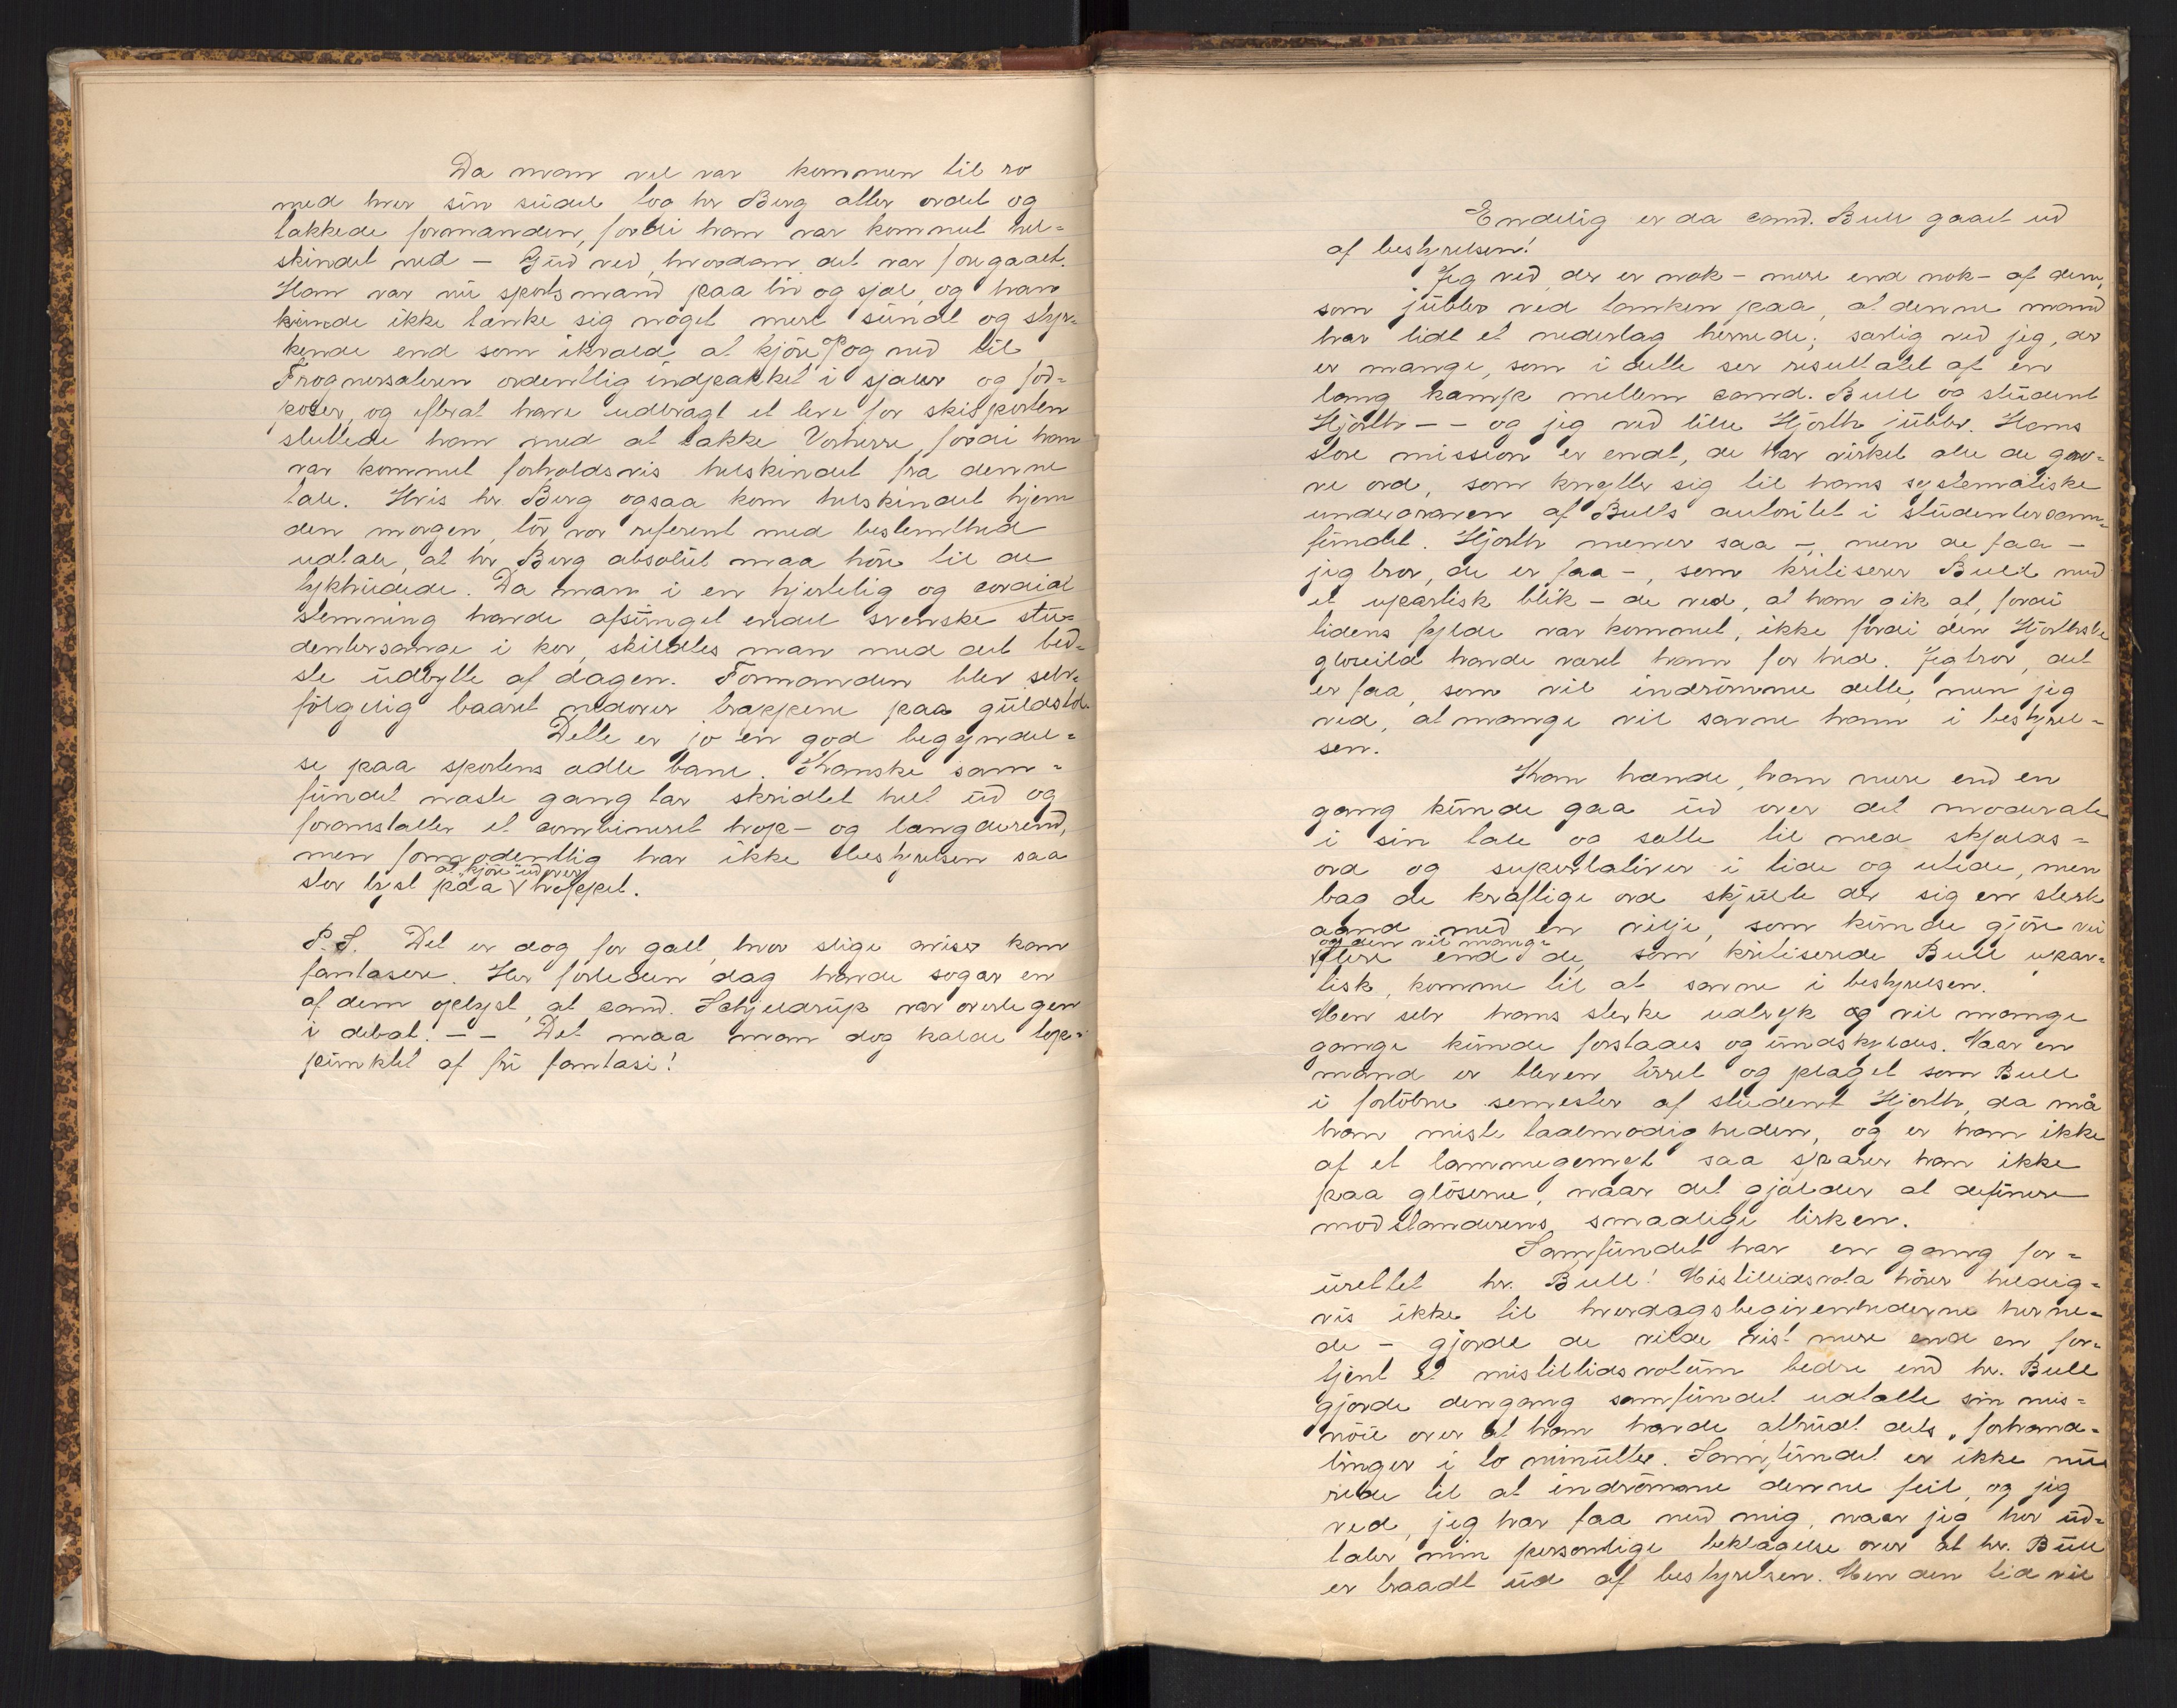 Da man vel var kommen til ro
med hver sin seidel tog hr Berg atter ordet og
takkede formanden, fordi han var kommet hel=
skindet ned – Gud ved, hvordan det var foregaaet.
Han var nu sportsmand paa liv og sjæl, og han
kunde ikke tænke sig noget mere sundt og styr=
kende end som ikvæld at kjöre op og ned til
Frognersæteren ordentlig indpakket i sjaler og fod=
poser, og efterat have udbragt et leve for skisporten
sluttede han med at takke Vorherre, fordi han
var kommet forholdsvis helskindet fra denne
tale. Hvis hr Berg ogsaa kom helskindet hjem
den morgen, tör vor referent med bestemthed
udtale, at hr Berg absolut maa höre til de
tykhudede. Da man i en hjertelig og cordial
stemning havde afsunget endel svenske stu=
dentersange i kor, skildtes man med det bed=
ste udbytte af dagen. Formanden blev selv=
fölgelig baaret nedover trappene paa guldstol.
Dette er jo en god begyndel=
se paa sportens ædle bane. Kanske sam=
fundet næste gang tar skridtet helt ud og
foranstalter et combineret hop- og langderend,
men formodentlig har ikke bestyrelsen saa
at kjöre udover
stor lyst paa hoppet.
P.S. Det er dog for galt, hvor slige aviser kan
fantasere. Her forleden dag havde sogar en
af dem oplyst, at cand. Schjeldrup var overlegen
i debat. – – Det maa man dog kalde top=
punktet af fri fantasi!
Endelig er da cand. Bull gaaet ud
af bestyrelsen!
Jeg ved, der er nok – mere end nok – af dem,
som jubler ved tanken paa, at denne mand
har lidt et nederlag hernede; særlig ved jeg, der
er mange, som i dette ser resultatet af en
lang kamp mellem cand. Bull og student
Hjorth – – og jeg ved lille Hjorth jubler. Hans
store mission er endt, de har virket alle de gro=
ve ord, som knytter sig til hans systematiske
undergraven af Bulls autoritet i studentersam=
fundet. Hjorth mener saa –, men de faa –
jeg tror, de er faa –, som kritiserer Bull med
et upartisk blik – de ved, at han gik af, fordi
tidens fylde var kommet, ikke fordi den Hjorthske
gloseild havde været ham for hed. Jeg tror, det
er faa, som vil indrömme dette, men jeg
ved, at mange vil savne ham i bestyrel=
sen.
Kan hænde, han mere end en
gang kunde gaa ud over det moderate
i sin tale og satte til med skjælds=
ord og superlativer i tide og utide, men
bag de kraftige ord skjulte der sig en sterk
aand med en vilje, som kunde gjöre vei
og den vil mange
flere end de, som kritiserede Bull upar=
tisk, komme til at savne i bestyrelsen.
Men selv hans sterke udtryk og vil mange
gange kunde forstaaes og undskyldes. Naar en
mand er bleven tirret og plaget som Bull
i forlöbne semester af student Hjorth, da må
han miste taalmodigheden, og er han ikke
af et lammegemyt saa sparer han ikke
paa glöserne, naar det gjælder at definere
modstanderens smaalige lirken.
Samfundet har en gang for=
urettet hr. Bull! Mistillidsvota hörer heldig=
vis ikke til hverdagsbegivenhederne herne=
de – gjorde de vilde vist mere end en for=
tjent et mistillidsvotum bedre end hr. Bull
gjorde dengang samfundet udtalte sin mis=
nöie over at han havde afbrudt dets forhand=
linger i to minutter. Samfundet er ikke nu
rede til at indrömme denne feil, og jeg
ved, jeg har faa med mig, naar jeg her ud=
taler min personlige beklagelse over at hr. Bull
er traadt ud af bestyrelsen. Men den tid vil